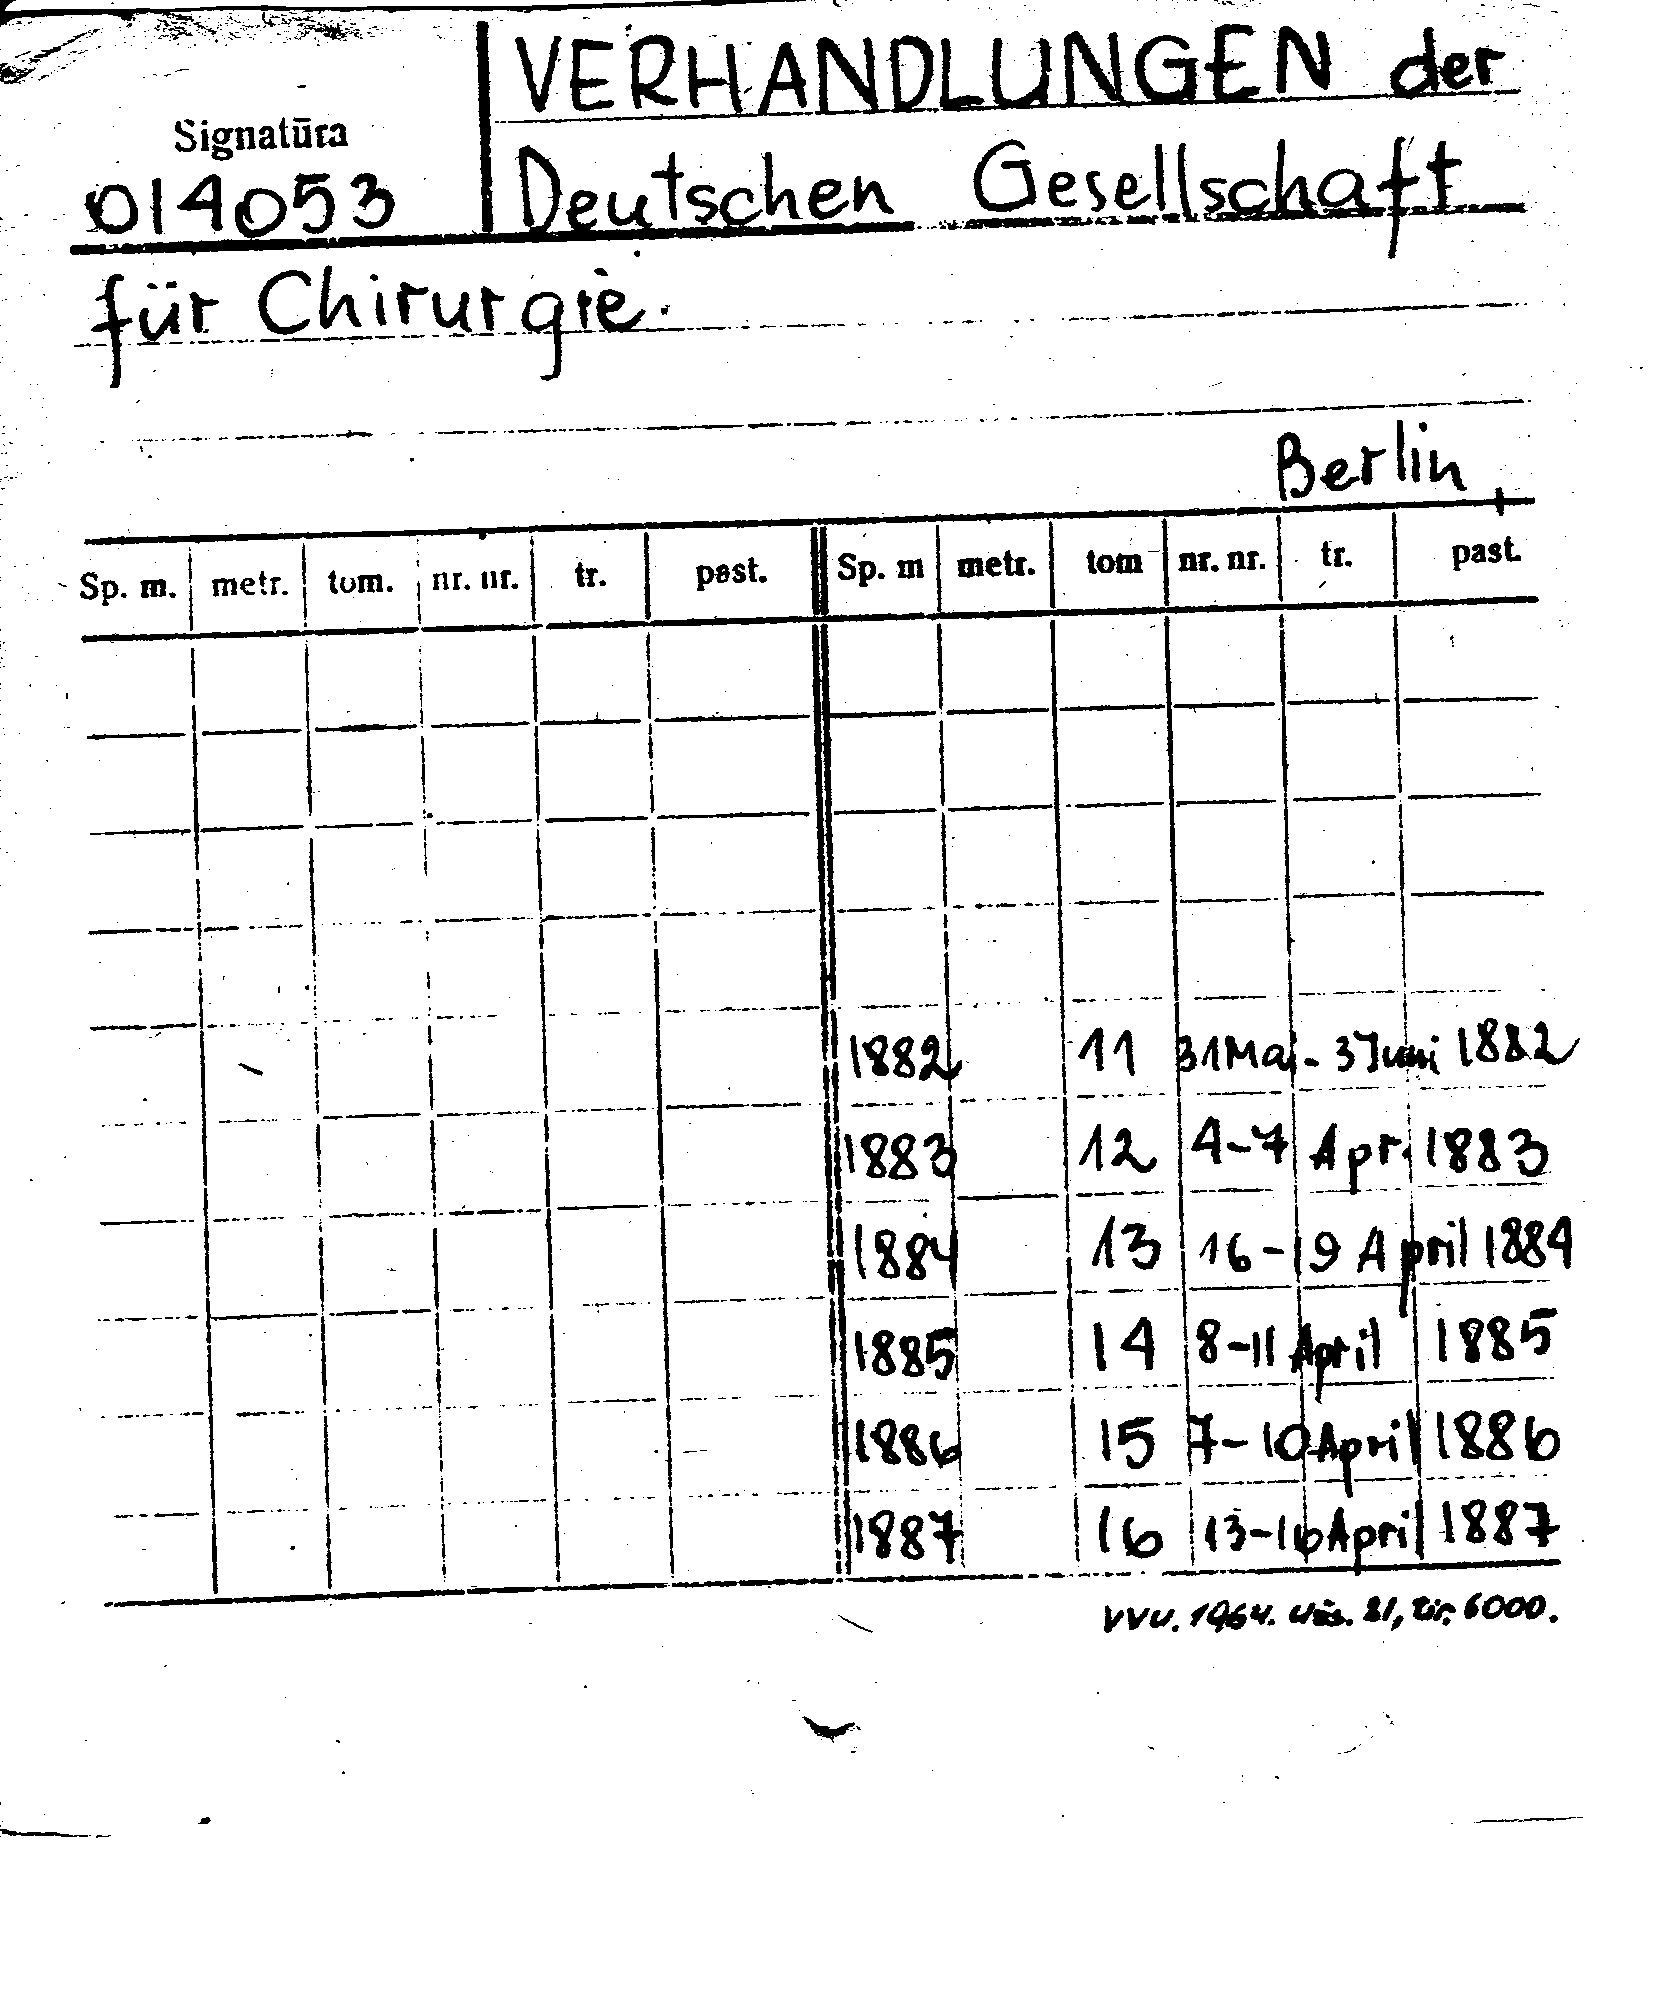 VERHANDLUNGEN der
Signatūra
014053
Deutschen Gesellschaft
für Chirurgie.
Berlin,
Sp. m. metr. tom. nr. nr. tr. past. Sp. m metr. tom nr. nr. tr. past.
1882 11 31 Mai - 3 Juni 1882
1883 12 4-7 Apr. 1883
1884 13 16-19 April 1884
1885 14 8-11 April 1885
1886 15 7-10 April 1886
1887 16 13-16 April 1887
VVU. 1964. Užs. 81, tir. 6000.